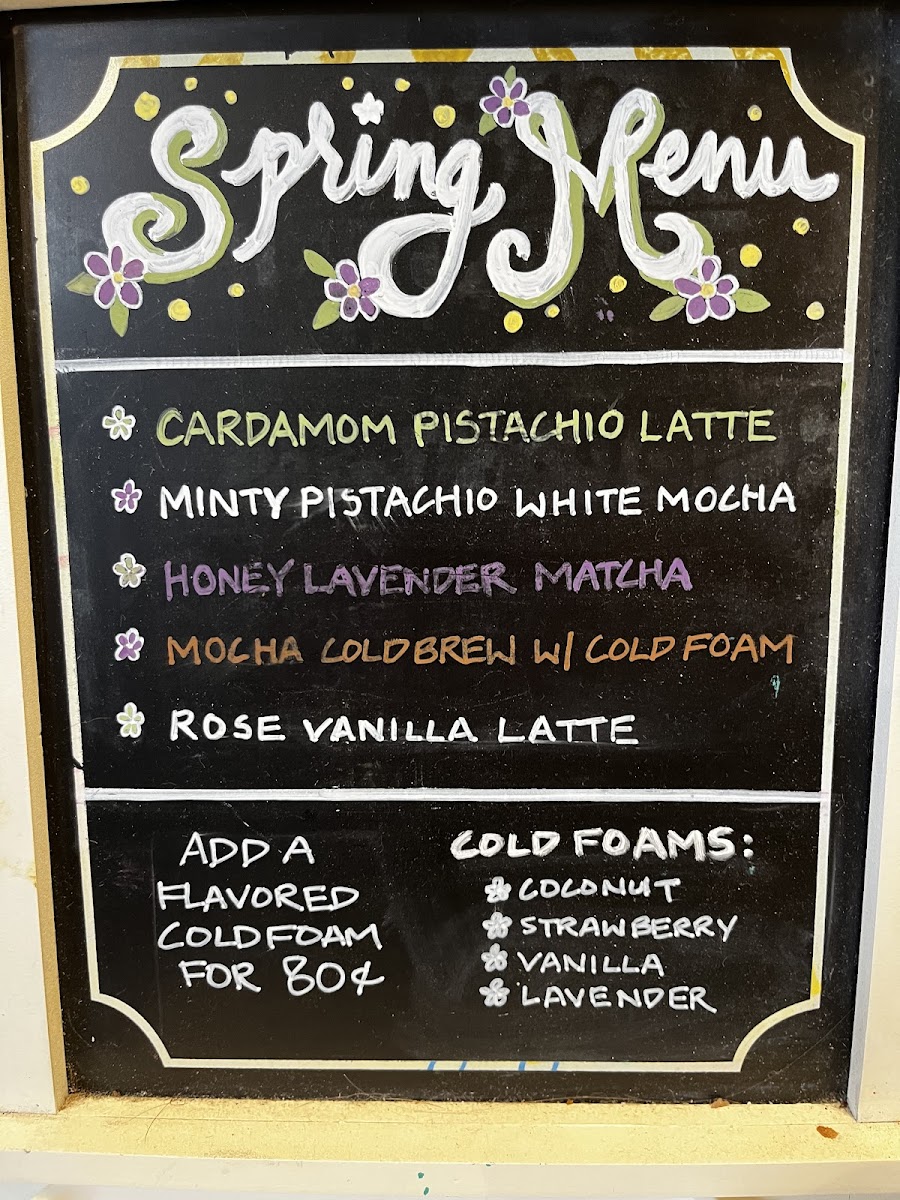 Spring Menu
CARDAMOM PISTACHIO LATTE
MINTY PISTACHIO WHITE MOCHA
HONEY LAVENDER MATCHA
MOCHA COLD BREW W/ COLD FOAM
ROSE VANILLA LATTE
ADD A
FLAVORED
COLD FOAM
FOR 80¢
COLD FOAMS:
COCONUT
STRAWBERRY
VANILLA
LAVENDER